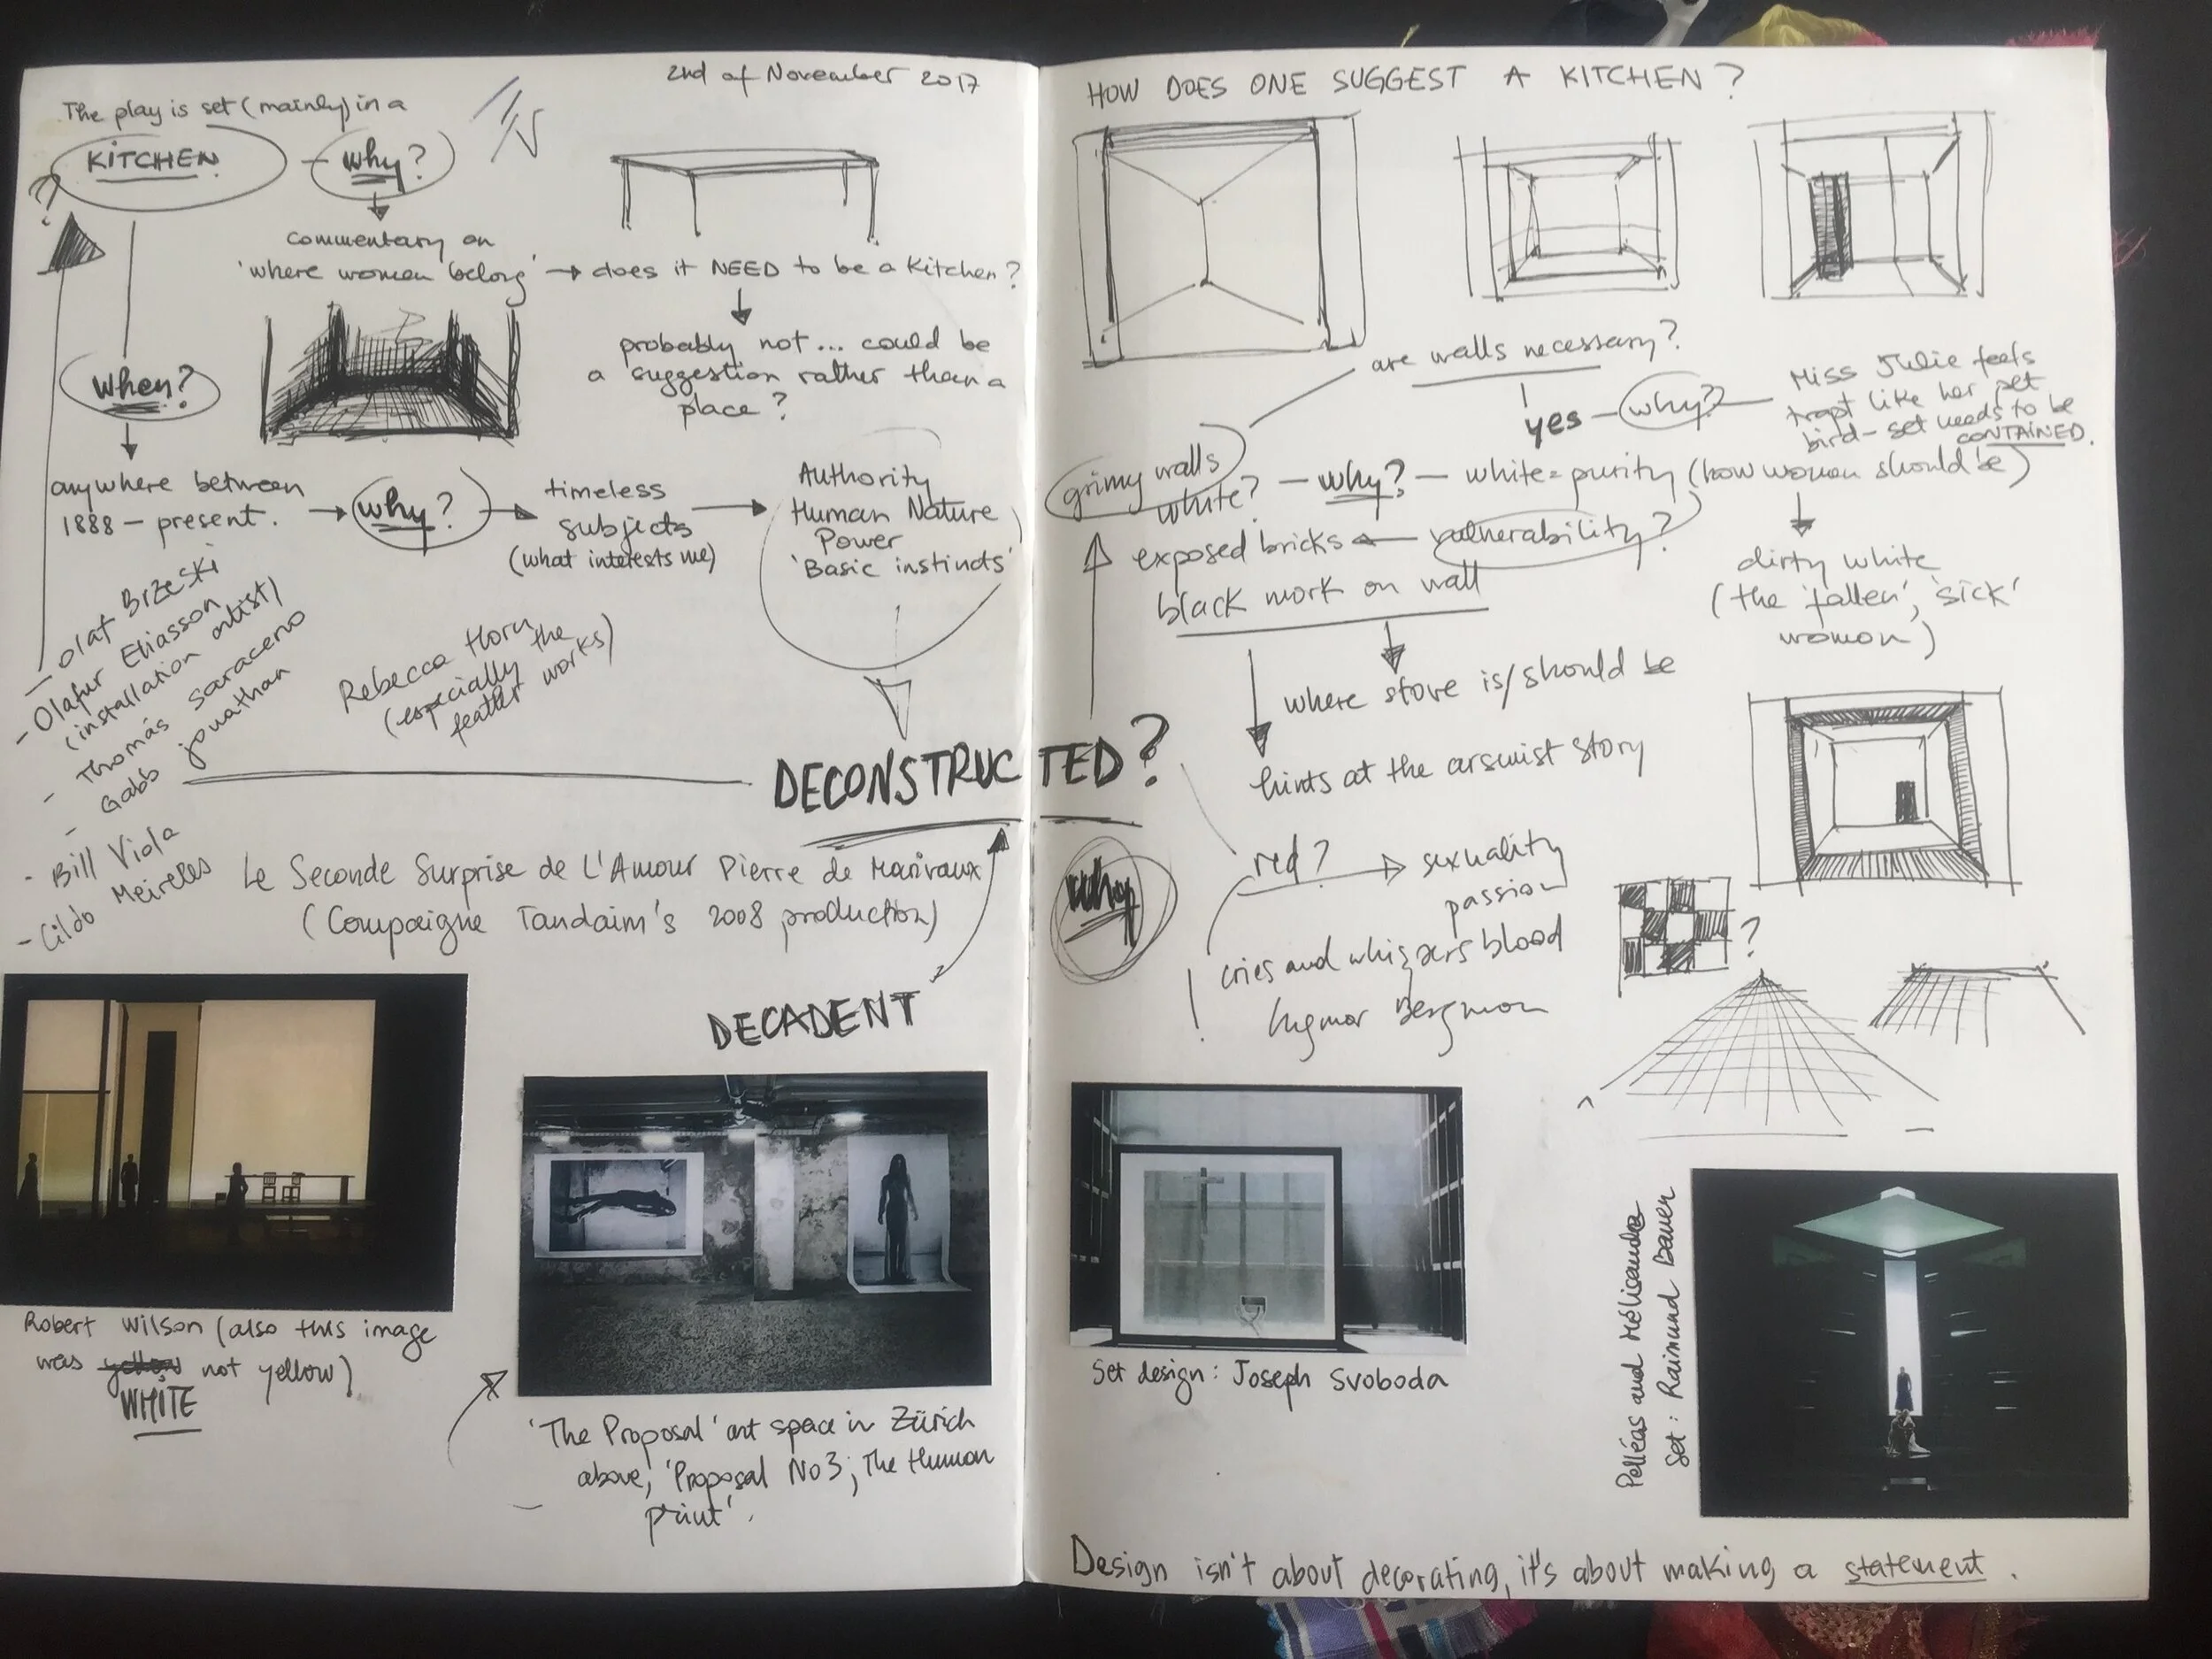 2nd of November 2017
The play is set (mainly) in a
KITCHEN - why?
?
commentary on
'where women 'belong' → does it NEED to be a kitchen?
probably not... could be
a suggestion rather than a
place?
when?
anywhere between
1888 - present.
why?
timeless
subjects
(what interests me)
Authority
Human Nature
Power
'Basic instincts'
- Olaf Brzeski
- Olafur Eliasson
(installation artist)
- Thomás Saraceno
- Gabb jonathan
- Bill Viola
- Cildo Meireles
Rebecca Horn
(especially the
feather works)
DECONSTRUCTED?
Le Seconde Surprise de L'Amour Pierre de Marivaux
(Compaigne Tandaim's 2008 production)
DECADENT
Robert Wilson (also this image
was yellow not yellow)
WHITE
'The Proposal' art space in Zürich
above, 'Proposal No 3; The Human
print'.
HOW DOES ONE SUGGEST A KITCHEN?
are walls necessary?
yes - why?
Miss Julie feels
trapt like her pet
bird - set needs to be
CONTAINED.
grimy walls
white? - why? - white = purity (how women should be)
exposed bricks ← vulnerability?
dirty white
(the 'fallen', 'sick'
woman)
black mark on wall
where stove is/should be
hints at the arsonist story
why
red? → sexuality
passion
blood
cries and whispers
Ingmar Bergman
?
Set design: Joseph Svoboda
Pelléas and Mélisande
Set: Raimund Bauer
Design isn't about decorating, it's about making a statement.